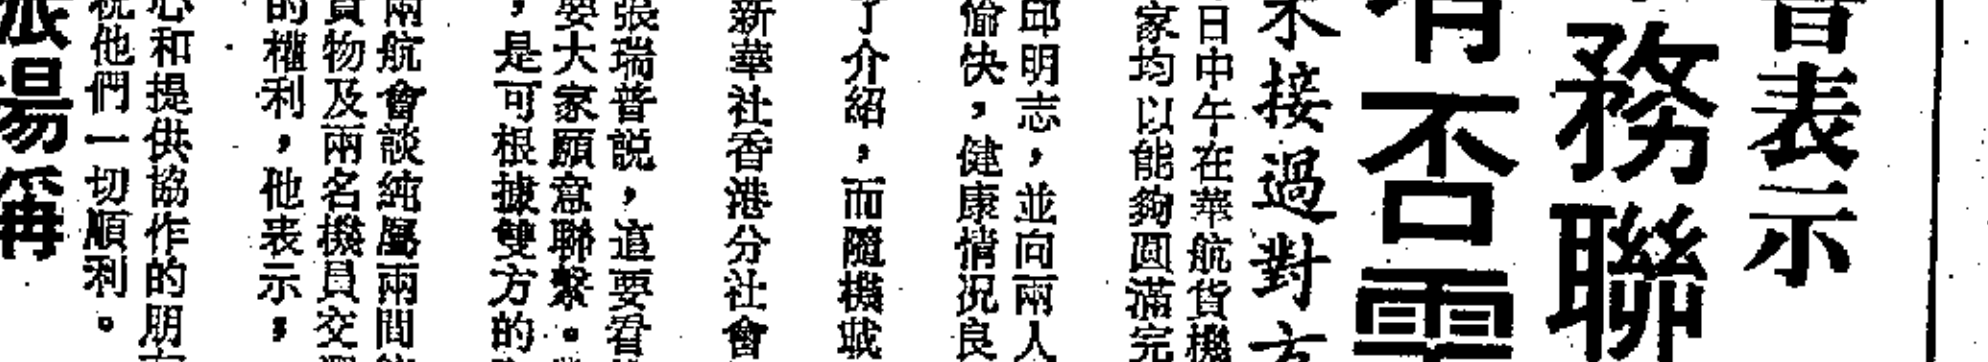 普表示
務聯
有否需
未接過對方
日中午在華航貨機
家均以能夠圓滿完
邱明志，並向兩人
愉快，健康情況良
了介紹，而隨機械
新華社香港分社會
張瑞普説，這要看
要大家願意聯繫。
，是可根據雙方的
兩航會談純屬兩間
貨物及兩名機員交
的權利，他表示，
心和提供協作的朋友
祝他們一切順利。
張揚稱